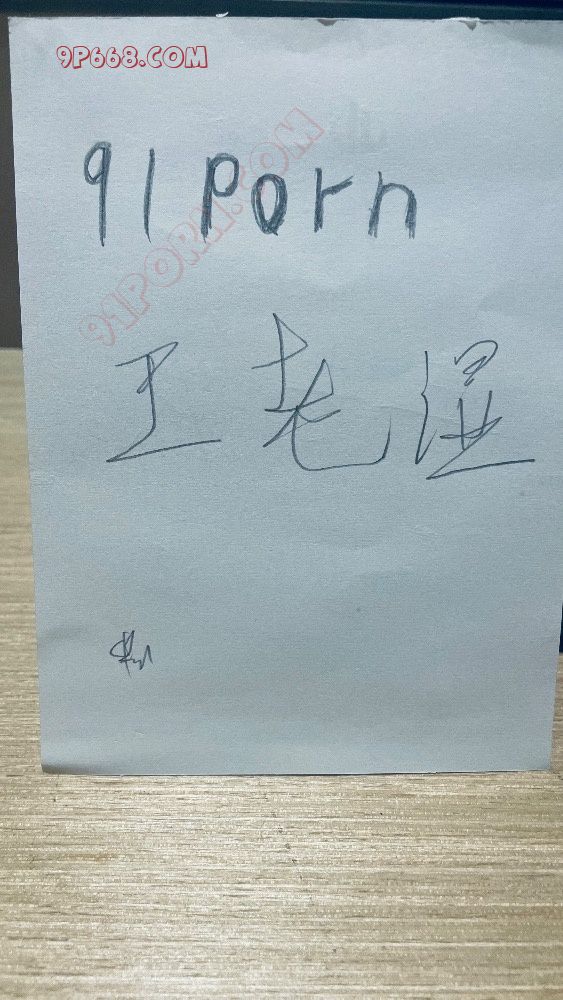 9P668.COM
91Porn
91PORM.COM
王老湿